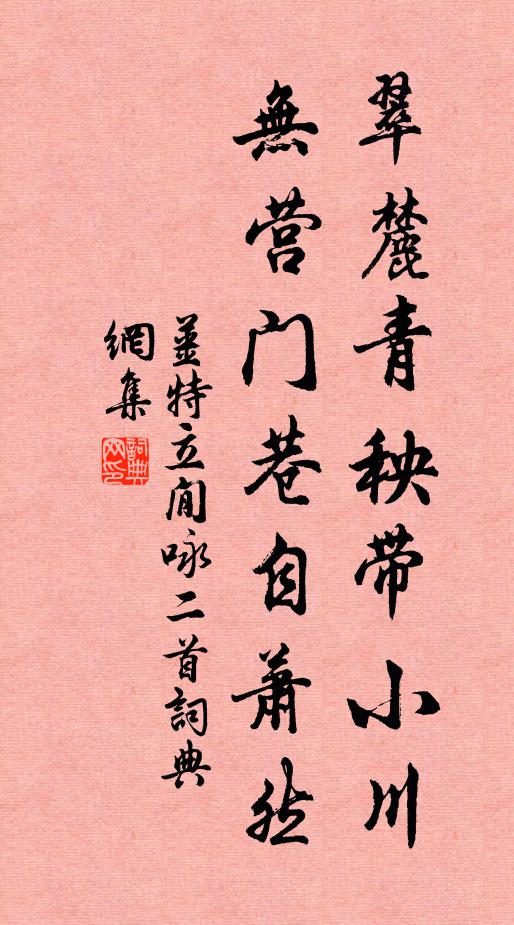 翠麓青秧带小川
無营门巷自萧然
姜特立閒咏二首詞典
網集
詞典网印